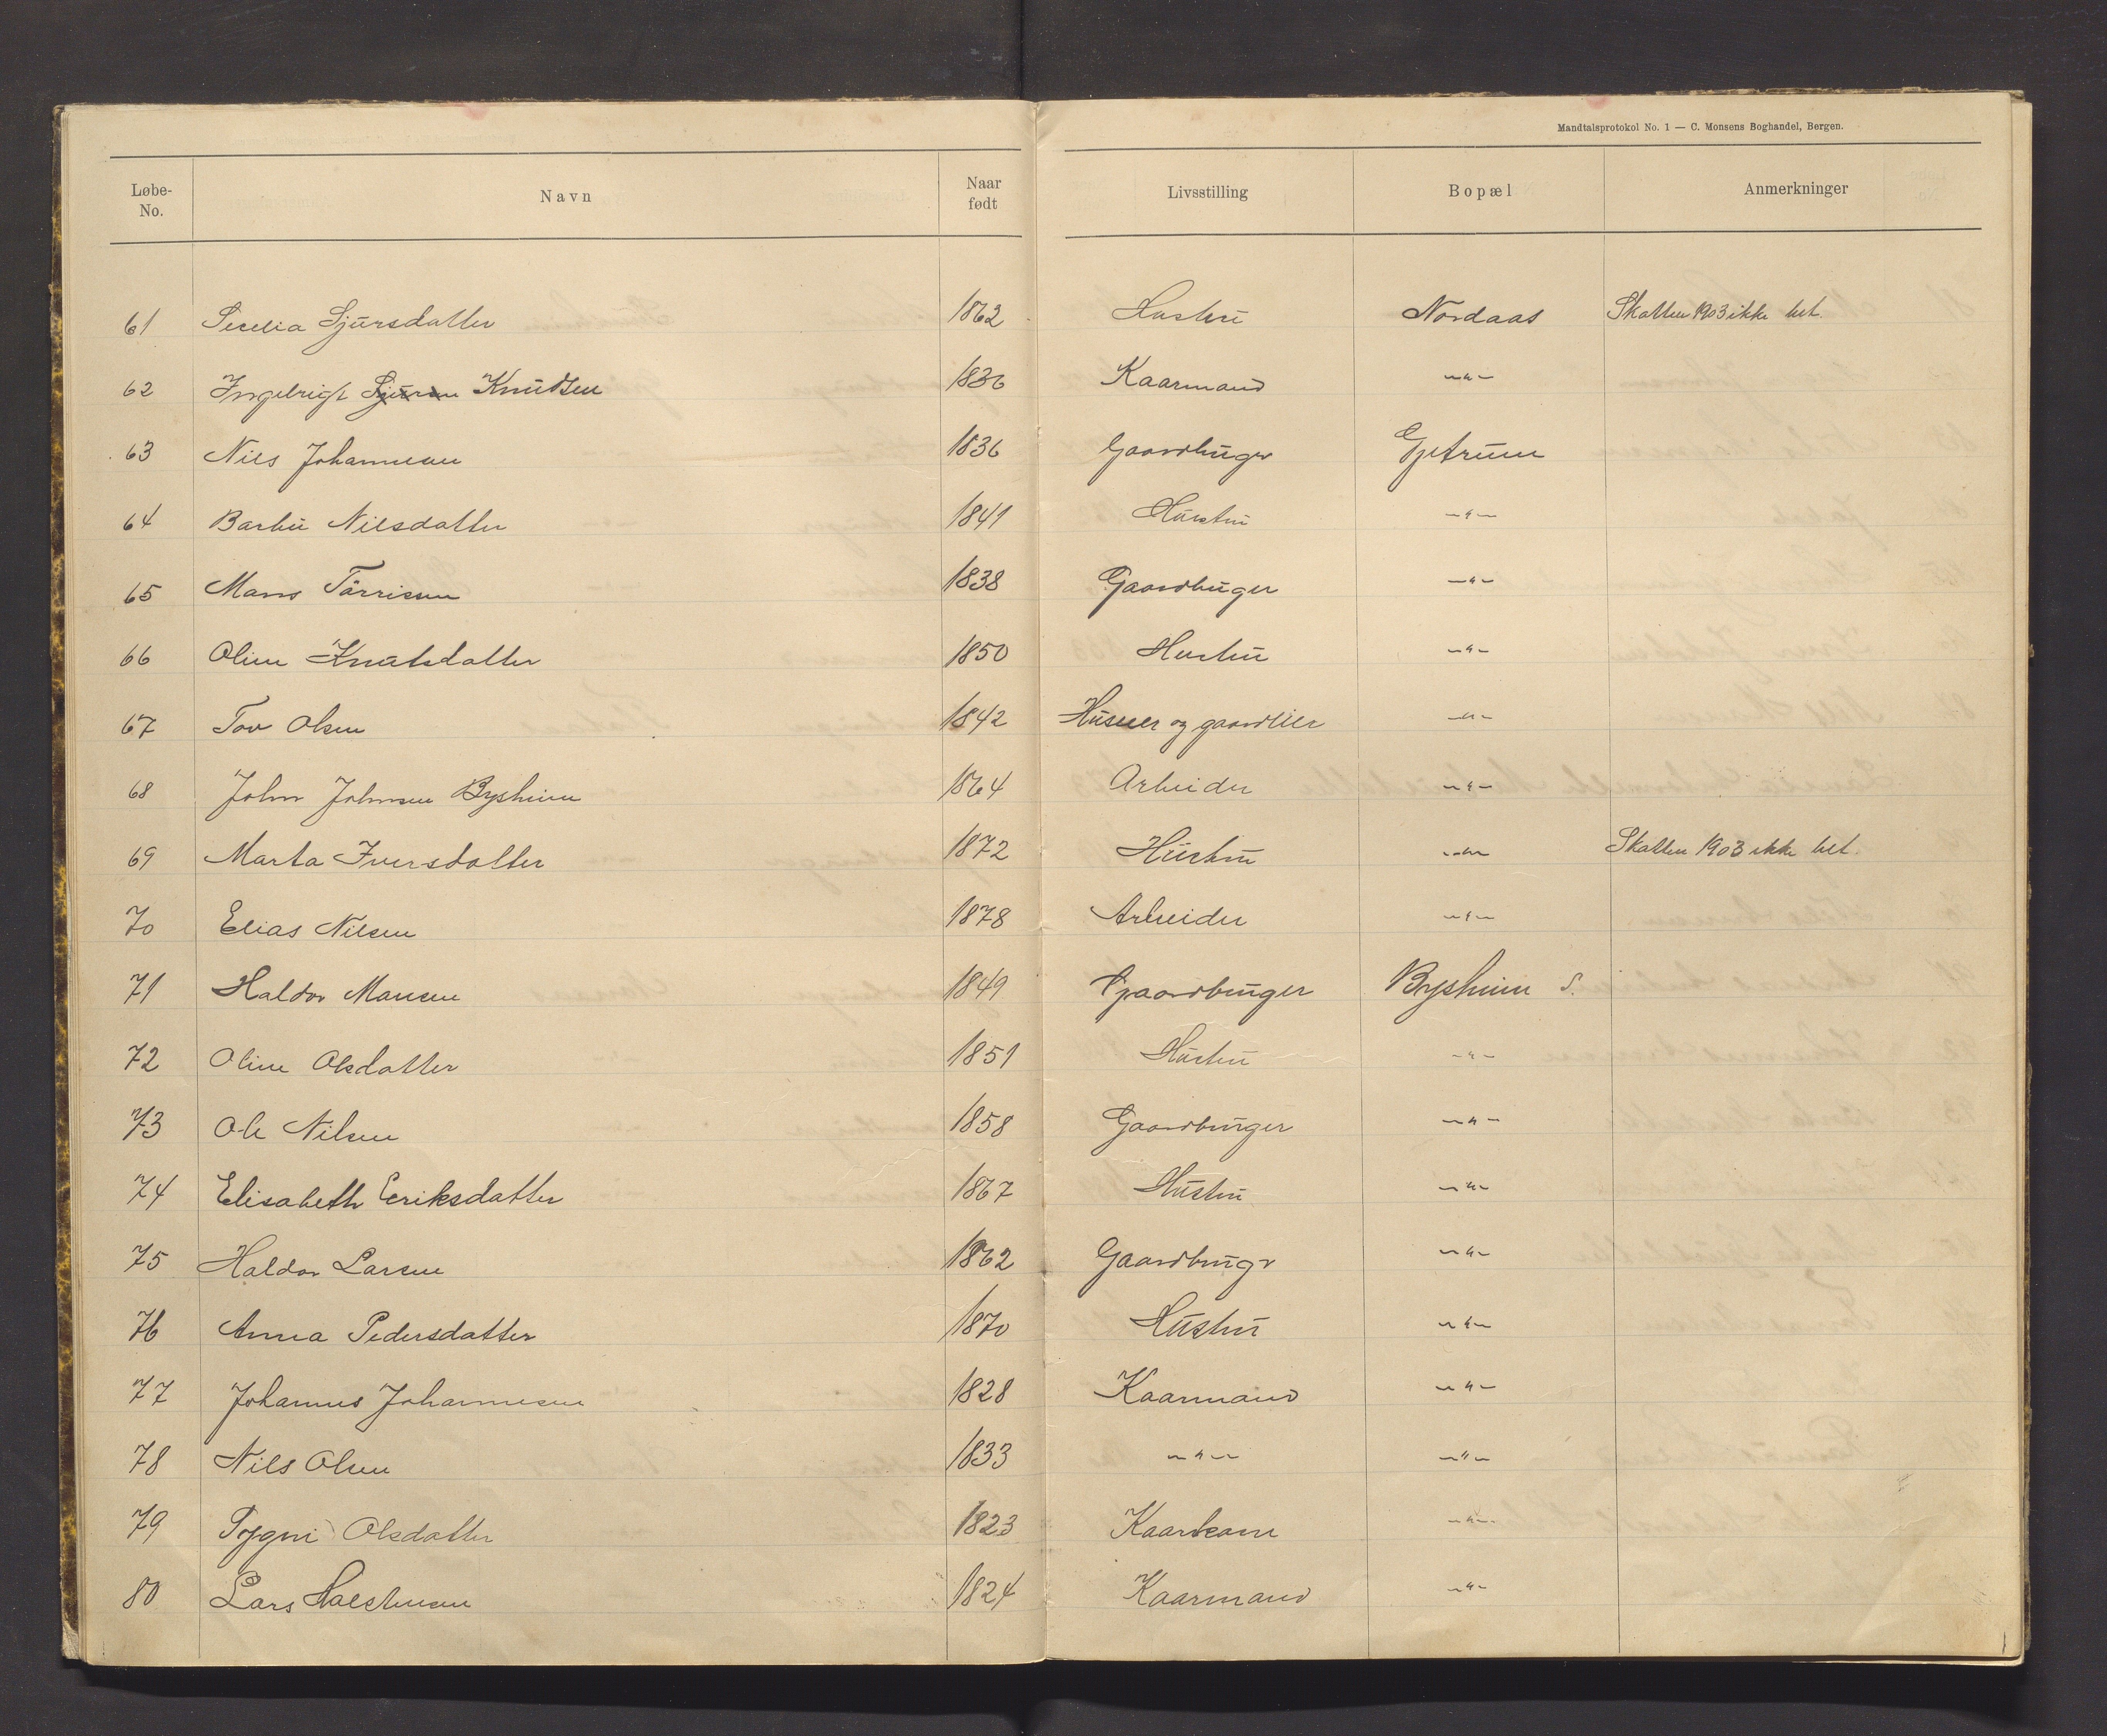 Mandtalsprotokol No. 1 — C. Monsens Boghandel, Bergen.
Løbe-No. Navn Naar født Livsstilling Bopæl Anmerkninger
61 Secelia Sjursdatter 1862 Hustru Nordaas Skatten 1903 ikke bet.
62 Ingebrigt Sjursen Knudsen 1836 Kaarmand -"-
63 Nils Johannesen 1836 Gaardbruger Gjetrum
64 Barbu Nilsdatter 1841 Hustru -"-
65 Mans Törrisen 1838 Gaardbruger -"-
66 Oline Knutsdatter 1850 Hustru -"-
67 Tov Olsen 1842 Husmer og gaardlier -"-
68 John Johnsen Bysheim 1864 Arbeider -"-
69 Marta Iversdatter 1872 Hustru -"- Skatten 1903 ikke bet.
70 Elias Nilsen 1878 Arbeider -"-
71 Haldor Mansen 1849 Gaardbruger Bysheim S.
72 Oline Olsdatter 1851 Hustru -"-
73 Ole Nilsen 1858 Gaardbruger -"-
74 Elisabeth Eeriksdatter 1867 Hustru -"-
75 Haldor Larsen 1862 Gaardbrugr -"-
76 Anna Pedersdatter 1870 Hustru -"-
77 Johannes Johannesen 1828 Kaarmand -"-
78 Nils Olsen 1833 -"- -"-
79 Olsdatter 1823 Kaarkone -"-
80 Lars 1824 Kaarmand -"-